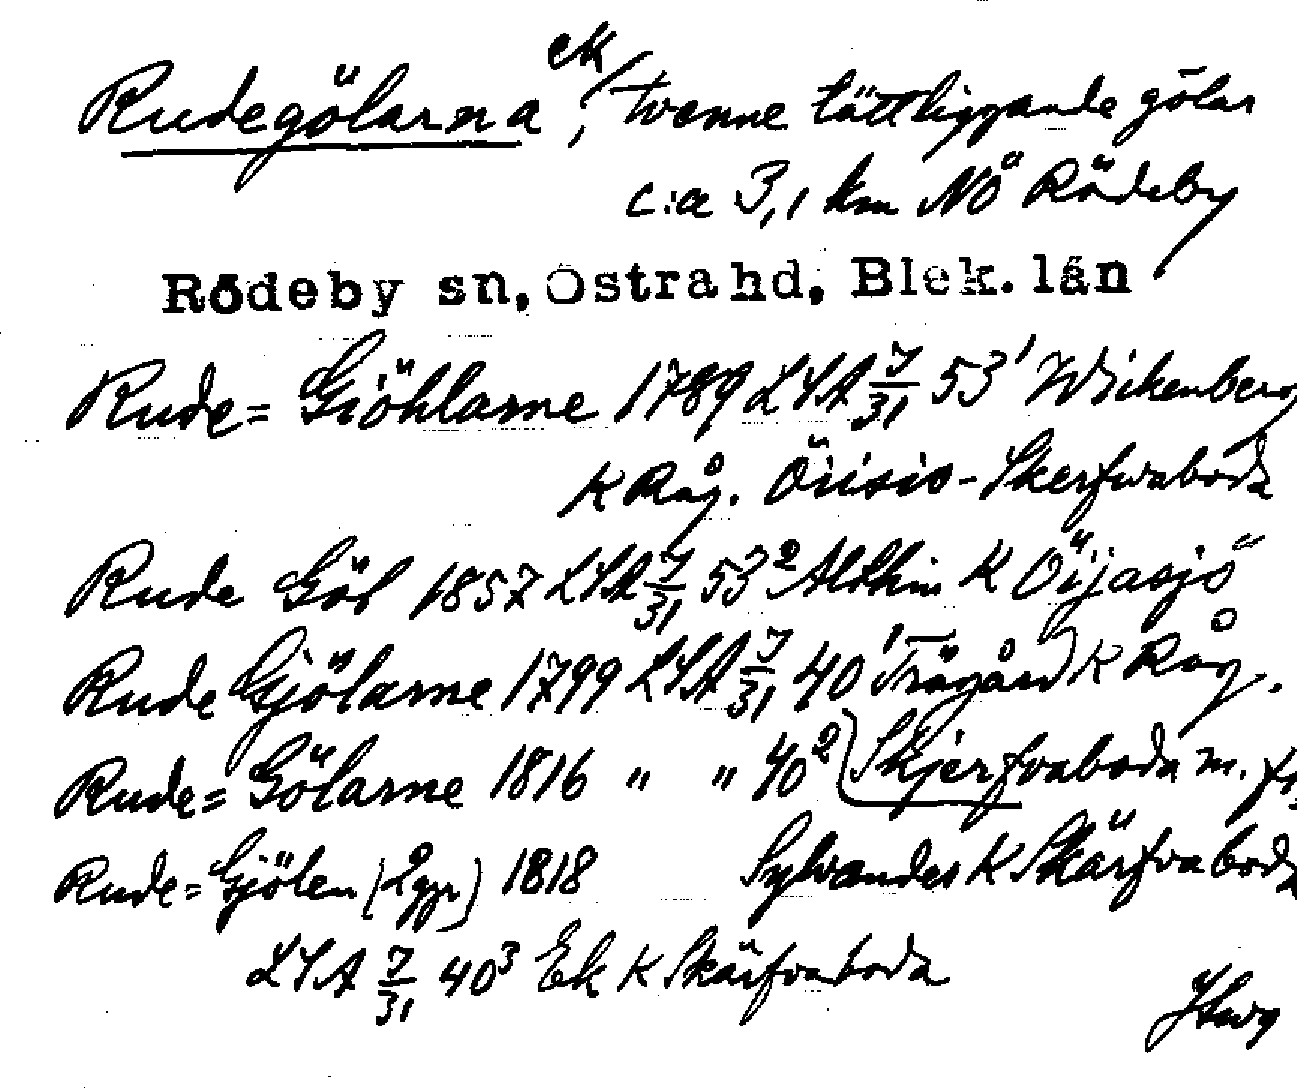 Rudegölarna ek/, tvenne tättliggande gölar
c:a 3,1 km NÖ Rödeby
Rödeby sn, Östra hd, Blek. län
Rude= Giöhlarne 1789 LSA 7/31 53¹ Wickenberg
K Råg. Öiisiö-Skerfwaboda
Rude Göl 1857 LSA 7/31 53² K Öijasjö
Rude Gjölarne 1799 LSA 7/31 40¹ Trägård) K Råg.
Rude= Gölarne 1816 " " 40² Skjerfvaboda m. fl.
Rude= Gjölen (2ggr) 1818 Sylvander K Skärfvaboda
LSA 7/31 40³ Ek K Skärfvaboda